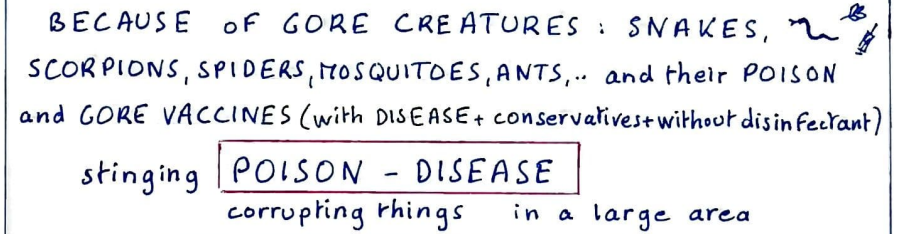 BECAUSE OF GORE CREATURES : SNAKES,
SCORPIONS, SPIDERS, MOSQUITOES, ANTS,.. and their POISON
and GORE VACCINES (with DISEASE + conservatives + without disinfectant)
stinging POISON - DISEASE
corrupting things in a large area